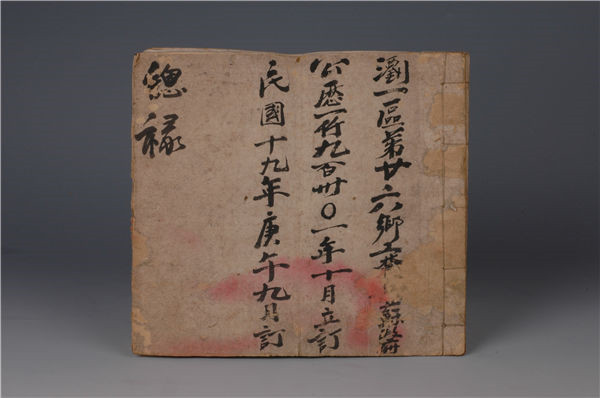 瀏一區第廿六鄉蘇政府
公歷一仟九百卅〇一年十月立訂
民國十九年庚午九月訂
緫祿